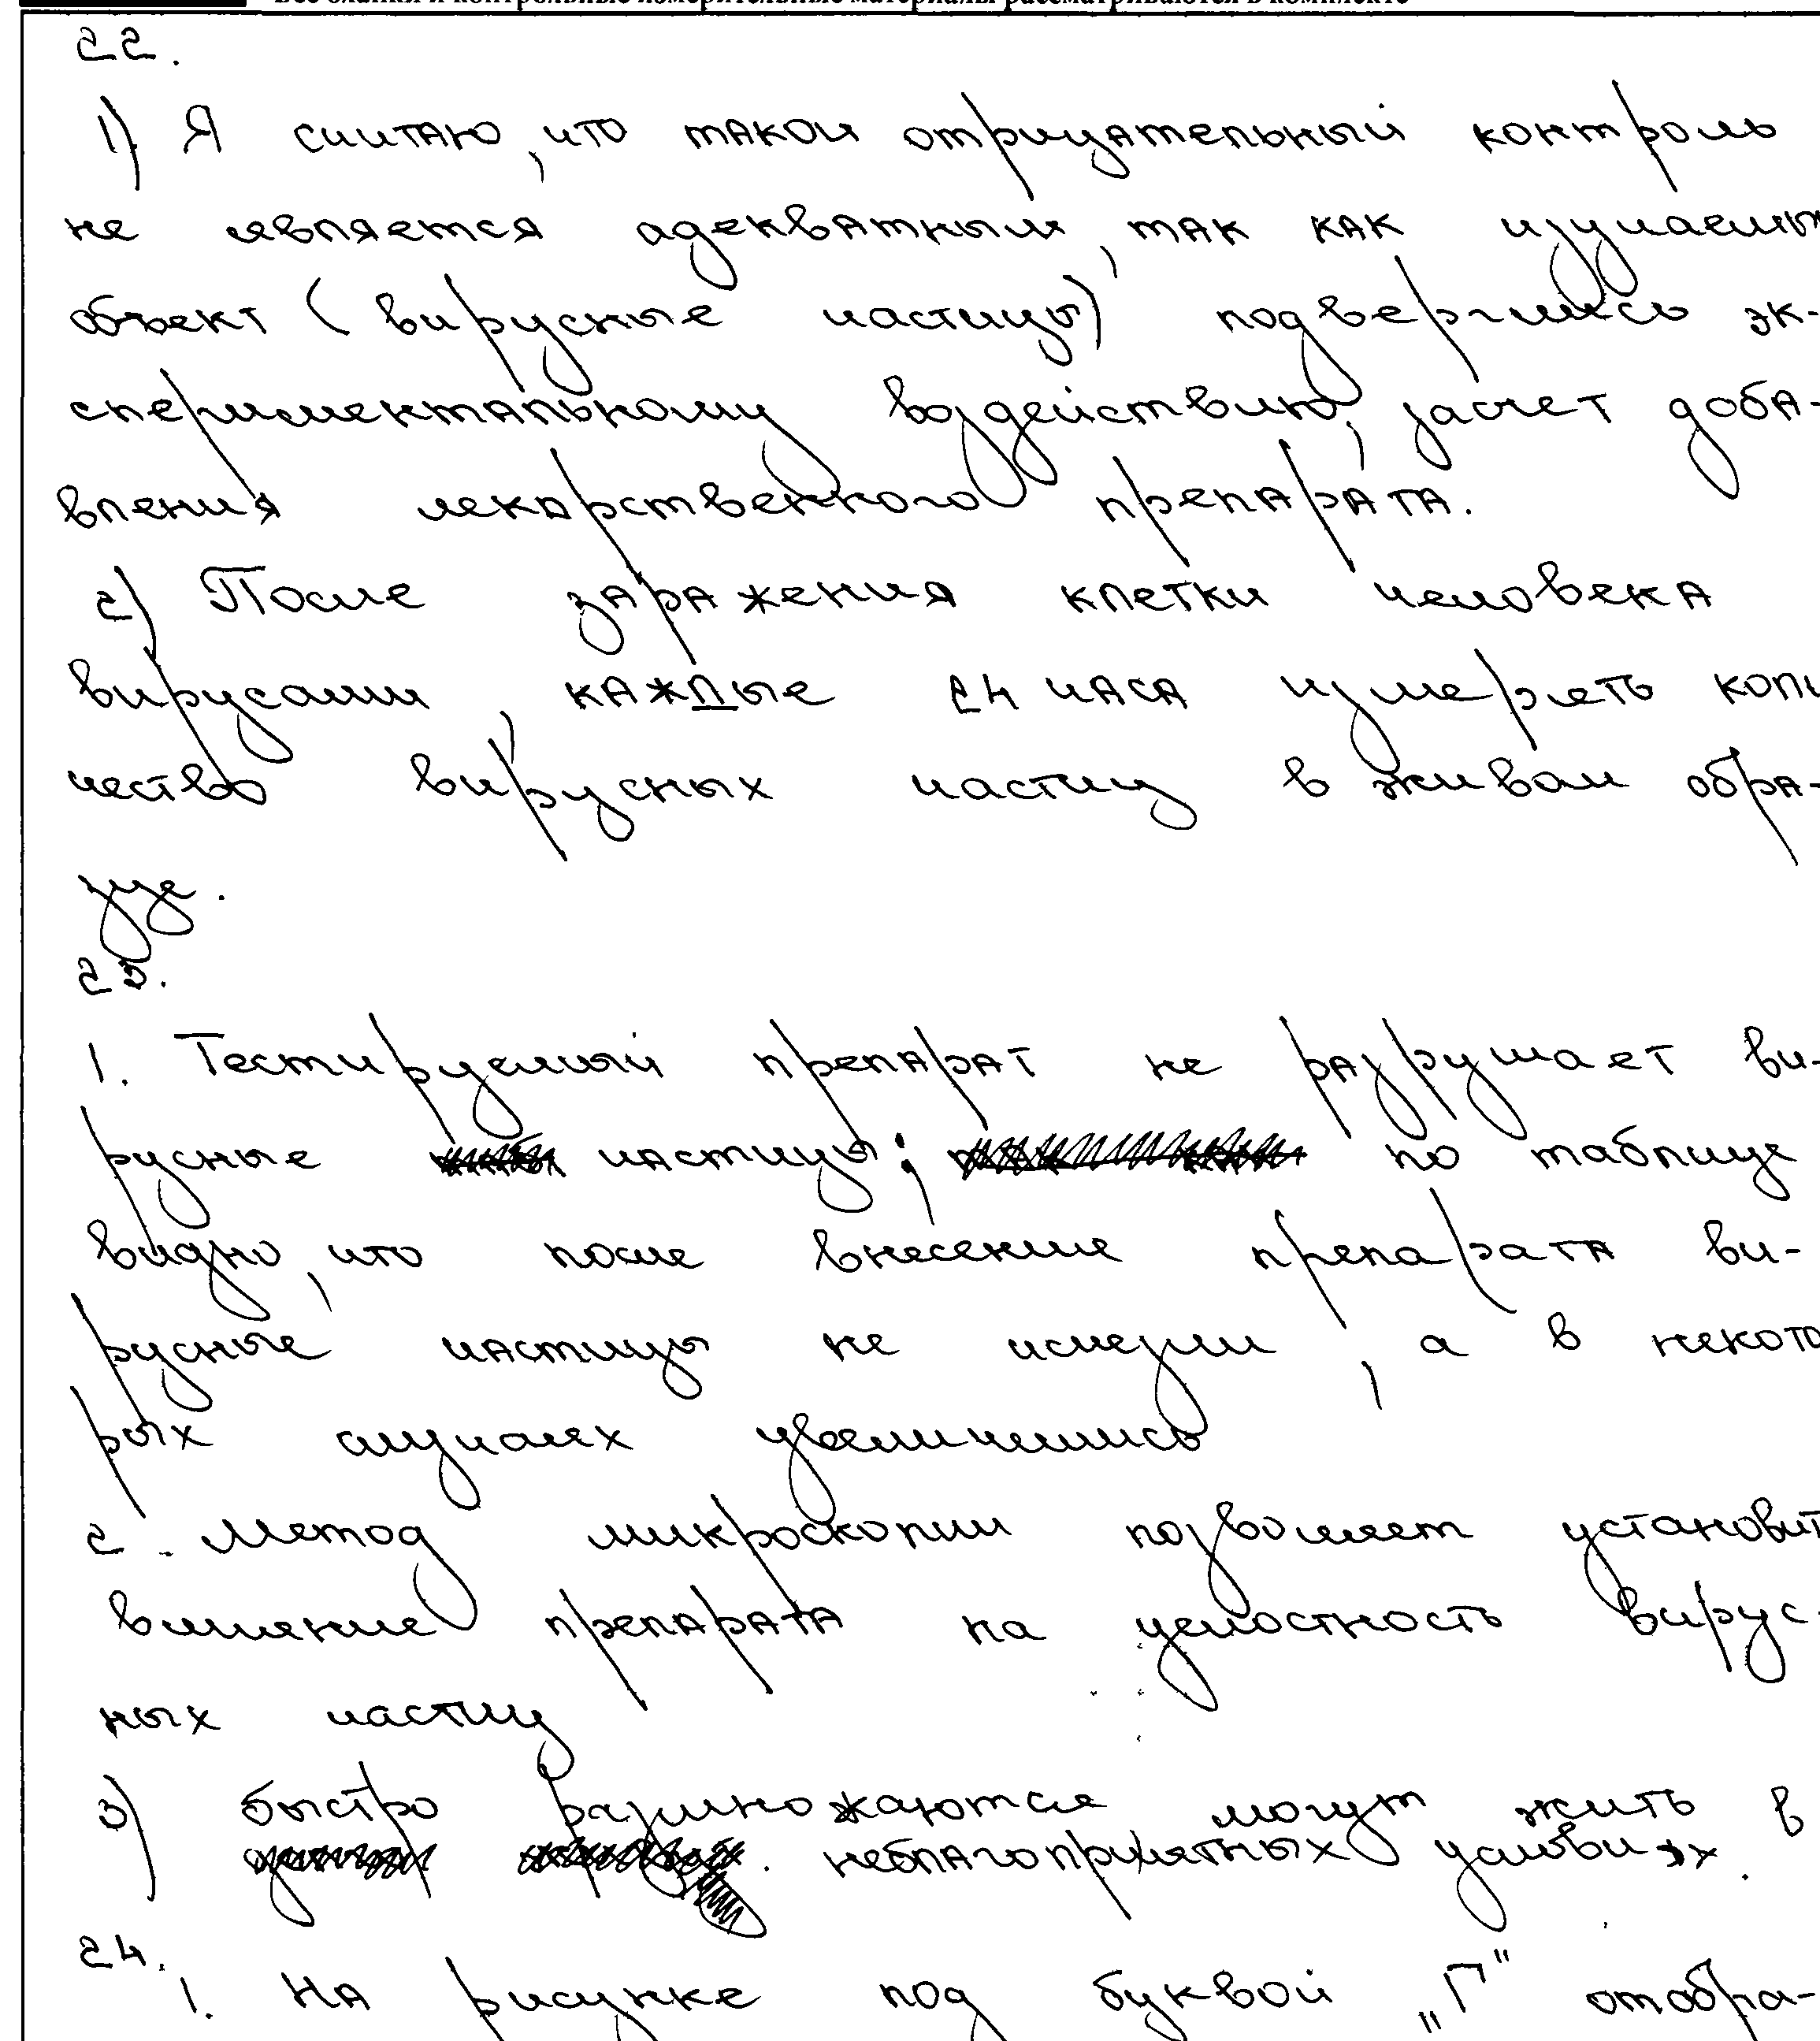 Все бланки и контрольные измерительные материалы рассматриваются в комплекте
22.
1) Я считаю, что такой отрицательный контроль
не является адекватным, так как изучаемый
объект (вирусные частицы) подверглись эк-
спериментальному воздействию, засчет доба-
вления лекарственного препарата.
2) После заражения клетки человека
вирусами, каждые 24 часа измерять коли
чество вирусных частиц в живом обра-
зце.
23.
1. Тестируемый препарат не разрушает ви-
русные частицы; по таблице
видно, что после внесение препарата ви-
русные частицы не исчезли, а в некото
рых случаях увеличились
2. Метод микроскопии позволяет установит
влияние препарата на целостность вирус-
ных частиц
3) быстро размножаются могут жить в
неблагоприятных условиях.
24.
1. На рисунке под буквой „Г" отобра-